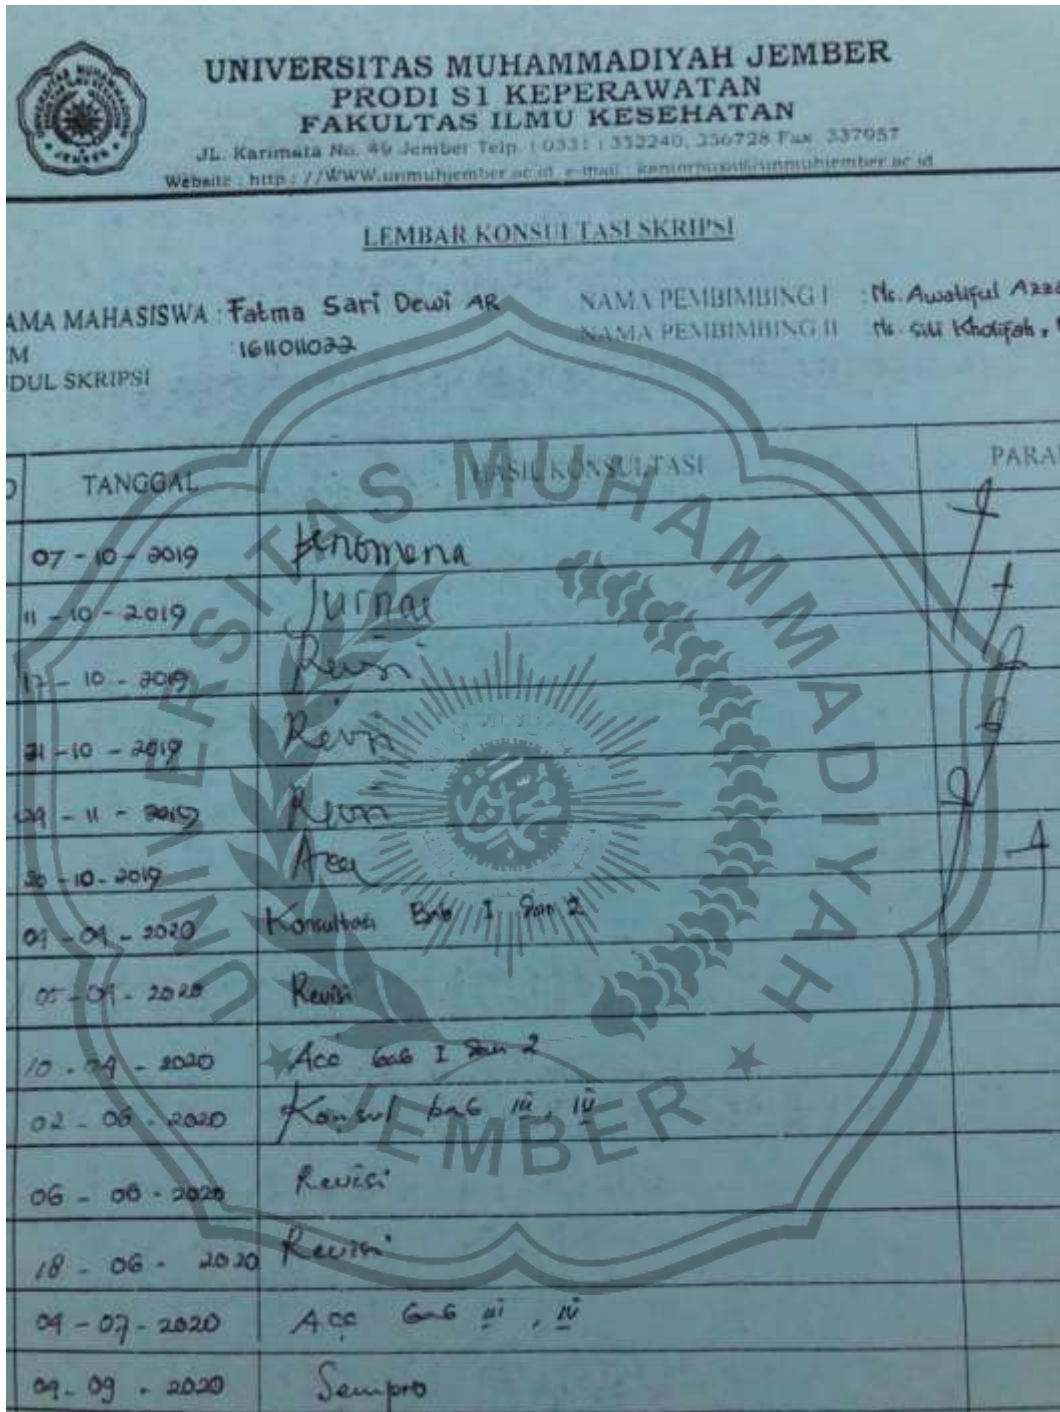 UNIVERSITAS MUHAMMADIYAH JEMBER
PRODI S1 KEPERAWATAN
FAKULTAS ILMU KESEHATAN
JL. Karimata No. 49 Jember Telp. (0331) 332240, 336728 Fax. 337957
Website : http : //WWW.unmuhjember.ac.id e-mail :
LEMBAR KONSULTASI SKRIPSI
AMA MAHASISWA : Fatma Sari Dewi AR NAMA PEMBIMBING I : Ns. Awatiful Azza
M : 1611011022 NAMA PEMBIMBING II : Ns. Siti Kholifah,
DUL SKRIPSI
TANGGAL HASIL KONSULTASI PARA
07 - 10 - 2019 fenomena
11 - 10 - 2019 Jurnal
17 - 10 - 2019 Revisi
21 - 10 - 2019 Revisi
29 - 11 - 2019 Revisi
30 - 10 - 2019 Acc
Konsultasi Bab I dan 2
2020 Revisi
2020 Acc bab I dan 2
2020 Konsul bab iii, iv
2020 Revisi
18 - 06 - 2020 Revisi
2020 Acc bab iii, iv
09 - 2020 Sempro
UNIVERSITAS MUHAMMADIYAH
JEMBER